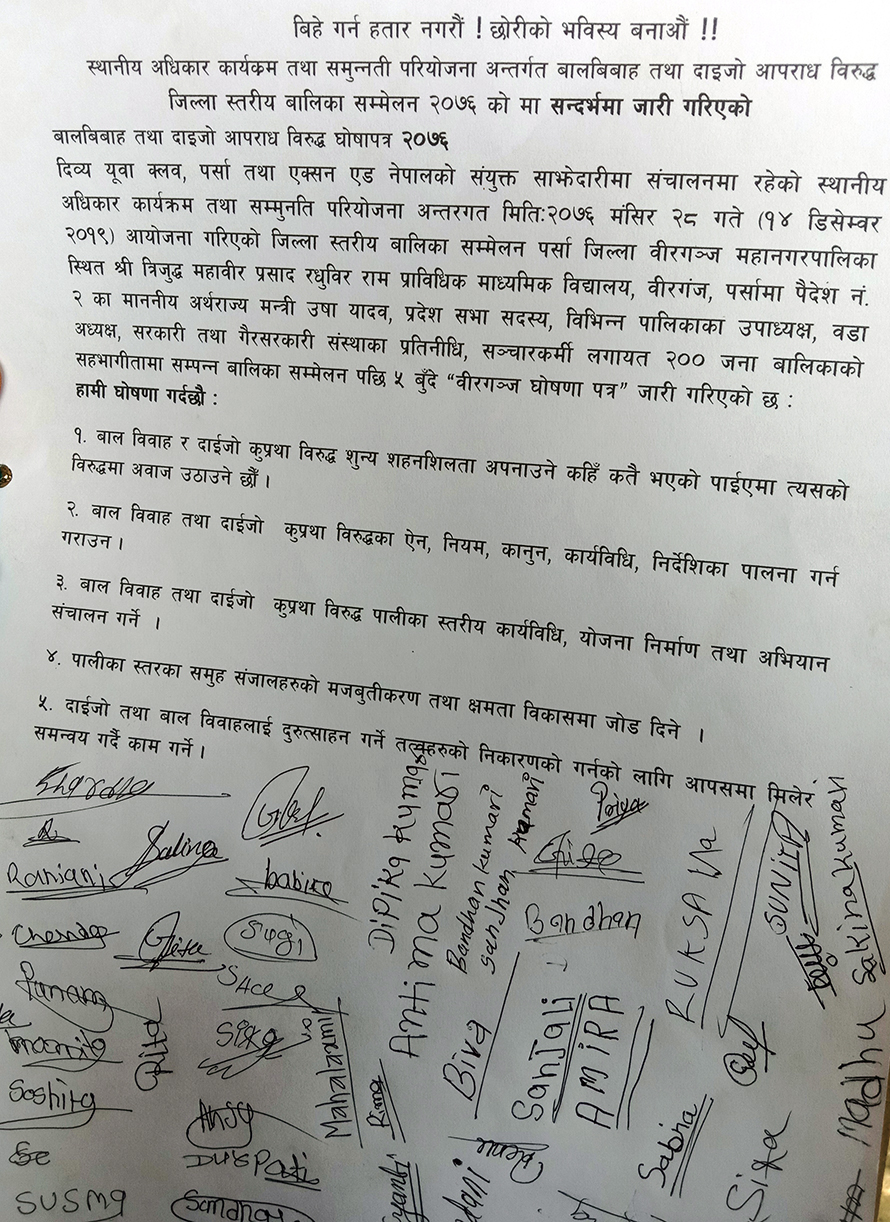 बिहे गर्न हतार नगरौं ! छोरीको भविस्य बनाऔं !!
स्थानीय अधिकार कार्यक्रम तथा समुन्नती परियोजना अन्तर्गत बालबिबाह तथा दाइजो आपराध विरुद्ध
जिल्ला स्तरीय बालिका सम्मेलन २०७६ को मा सन्दर्भमा जारी गरिएको
बालबिबाह तथा दाइजो आपराध विरुद्ध घोषापत्र २०७६
दिव्य यूवा क्लव, पर्सा तथा एक्सन एड नेपालको संयुक्त साझेदारीमा संचालनमा रहेको स्थानीय
अधिकार कार्यक्रम तथा सम्मुनति परियोजना अन्तरगत मिति:२०७६ मंसिर २८ गते (१४ डिसेम्वर
२०१९) आयोजना गरिएको जिल्ला स्तरीय बालिका सम्मेलन पर्सा जिल्ला वीरगञ्ज महानगरपालिका
स्थित श्री त्रिजुद्ध महावीर प्रसाद रधुविर राम प्राविधिक माध्यमिक विद्यालय, वीरगंज, पर्सामा पैदेश नं.
२ का माननीय अर्थराज्य मन्त्री उषा यादव, प्रदेश सभा सदस्य, विभिन्न पालिकाका उपाध्यक्ष, वडा
अध्यक्ष, सरकारी तथा गैरसरकारी संस्थाका प्रतिनीधि, सञ्चारकर्मी लगायत २०० जना बालिकाको
सहभागीतामा सम्पन्न बालिका सम्मेलन पछि ५ बुँदे “वीरगञ्ज घोषणा पत्र” जारी गरिएको छ :
हामी घोषणा गर्दछौ :
१. बाल विवाह र दाईजो कुप्रथा विरुद्ध शुन्य शहनशिलता अपनाउने कहिँ कतै भएको पाईएमा त्यसको
विरुद्धमा अवाज उठाउने छौँ ।
२. बाल विवाह तथा दाईजो कुप्रथा विरुद्धका ऐन, नियम, कानुन, कार्यविधि, निर्देशिका पालना गर्न
गराउन ।
३. बाल विवाह तथा दाईजो कुप्रथा विरुद्ध पालीका स्तरीय कार्यविधि, योजना निर्माण तथा अभियान
संचालन गर्ने ।
४. पालीका स्तरका समुह संजालहरुको मजबुतीकरण तथा क्षमता विकासमा जोड दिने ।
५. दाईजो तथा बाल विवाहलाई दुरुत्साहन गर्ने तत्वहरुको निकारणको गर्नको लागि आपसमा मिलेर
समन्वय गर्दै काम गर्ने ।
Sharda
Ranjani
Salinga
babita
Gita
Rita
Sita
Mahalaxmi
Soshita
SUSMA
DIPIKA KUMARI
Antima Kumari
Bandhan kumari
Sanjhan kumari
Priya
Bandhan
RUKSANA
SUNITA
Sakina kumari
Biva
SANJALI
AMIRA
Rima
Sabina
Sita
Madhu